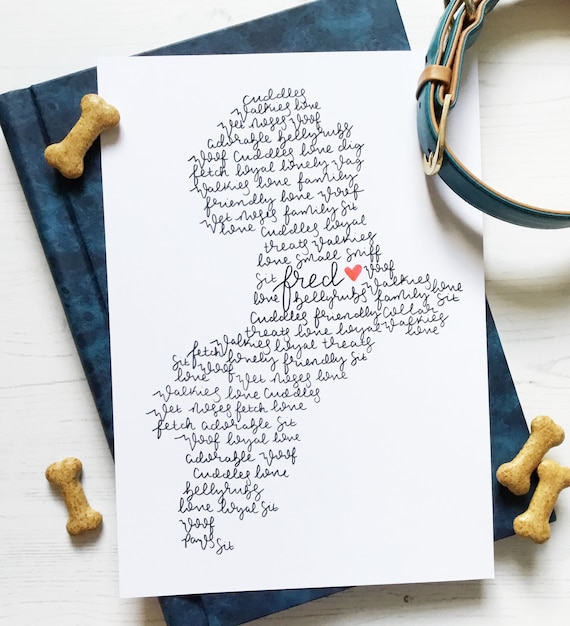 Cuddles
Walkies love
Wet Noses Woof
adorable bellyrubs
Woof Cuddles love dig
fetch loyal lovely Wag
Walkies love family
friendly love Woof
Wet Noses family Sit
love Cuddles loyal
treats Walkies
love Small Sniff
Sit fred Woof
love bellyrubs Walkies love
Cuddles friendly family Sit
treats love loyal Collar
Walkies loyal treats Walkies love
Sit fetch lovely friendly Sit
love Woof Wet Noses love
Walkies love Cuddles
Wet Noses fetch love
fetch adorable Sit
Woof loyal love
adorable Woof
Cuddles love
bellyrubs
love loyal Sit
Woof
Paws Sit